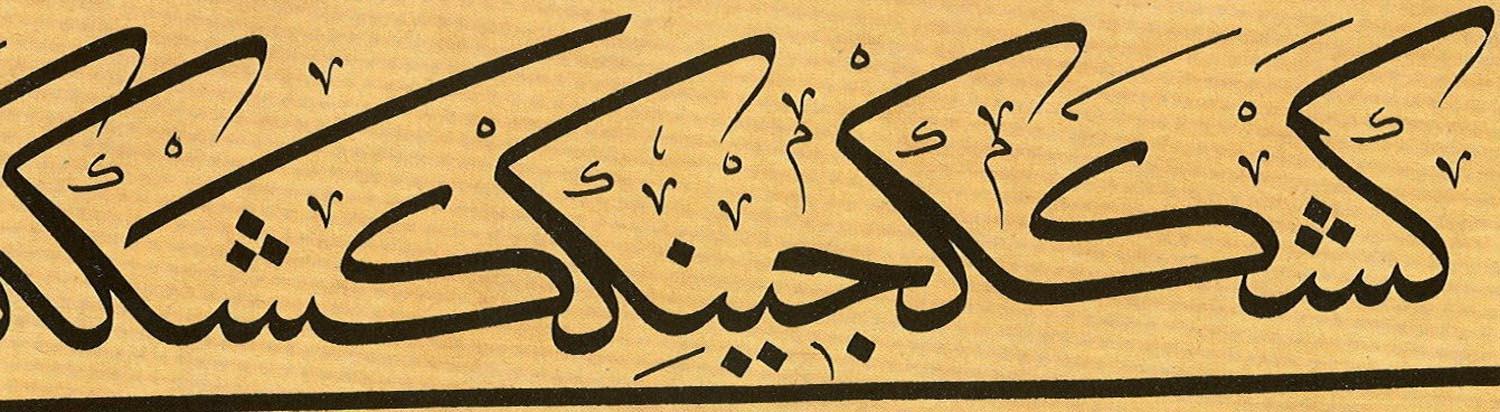 كشككجينككشكك